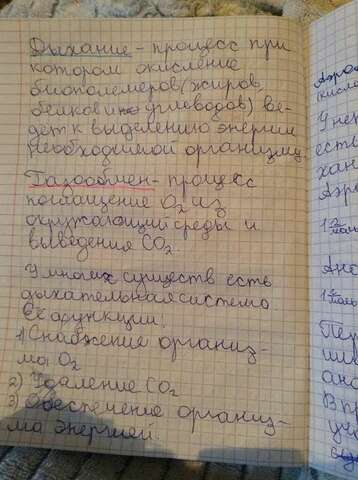 Дыхание - процесс при
котором окисление
биополемеров (жиров,
белков и углеводов) ве-
дет к выделению энергии
необходимой организму.
Газообмен - процесс
поглащение O2 из
окружающий среды и
выведения CO2.
У многих существ есть
дыхательная система.
Её функции:
1) Снабжение организ-
ма O2
2) Удаление CO2
3) Обеспечение организ-
ма энергией.
Аэро
(кисло
У неп
есть
хан
Аэр
Ана
Пер
ши
ана
В пр
уч